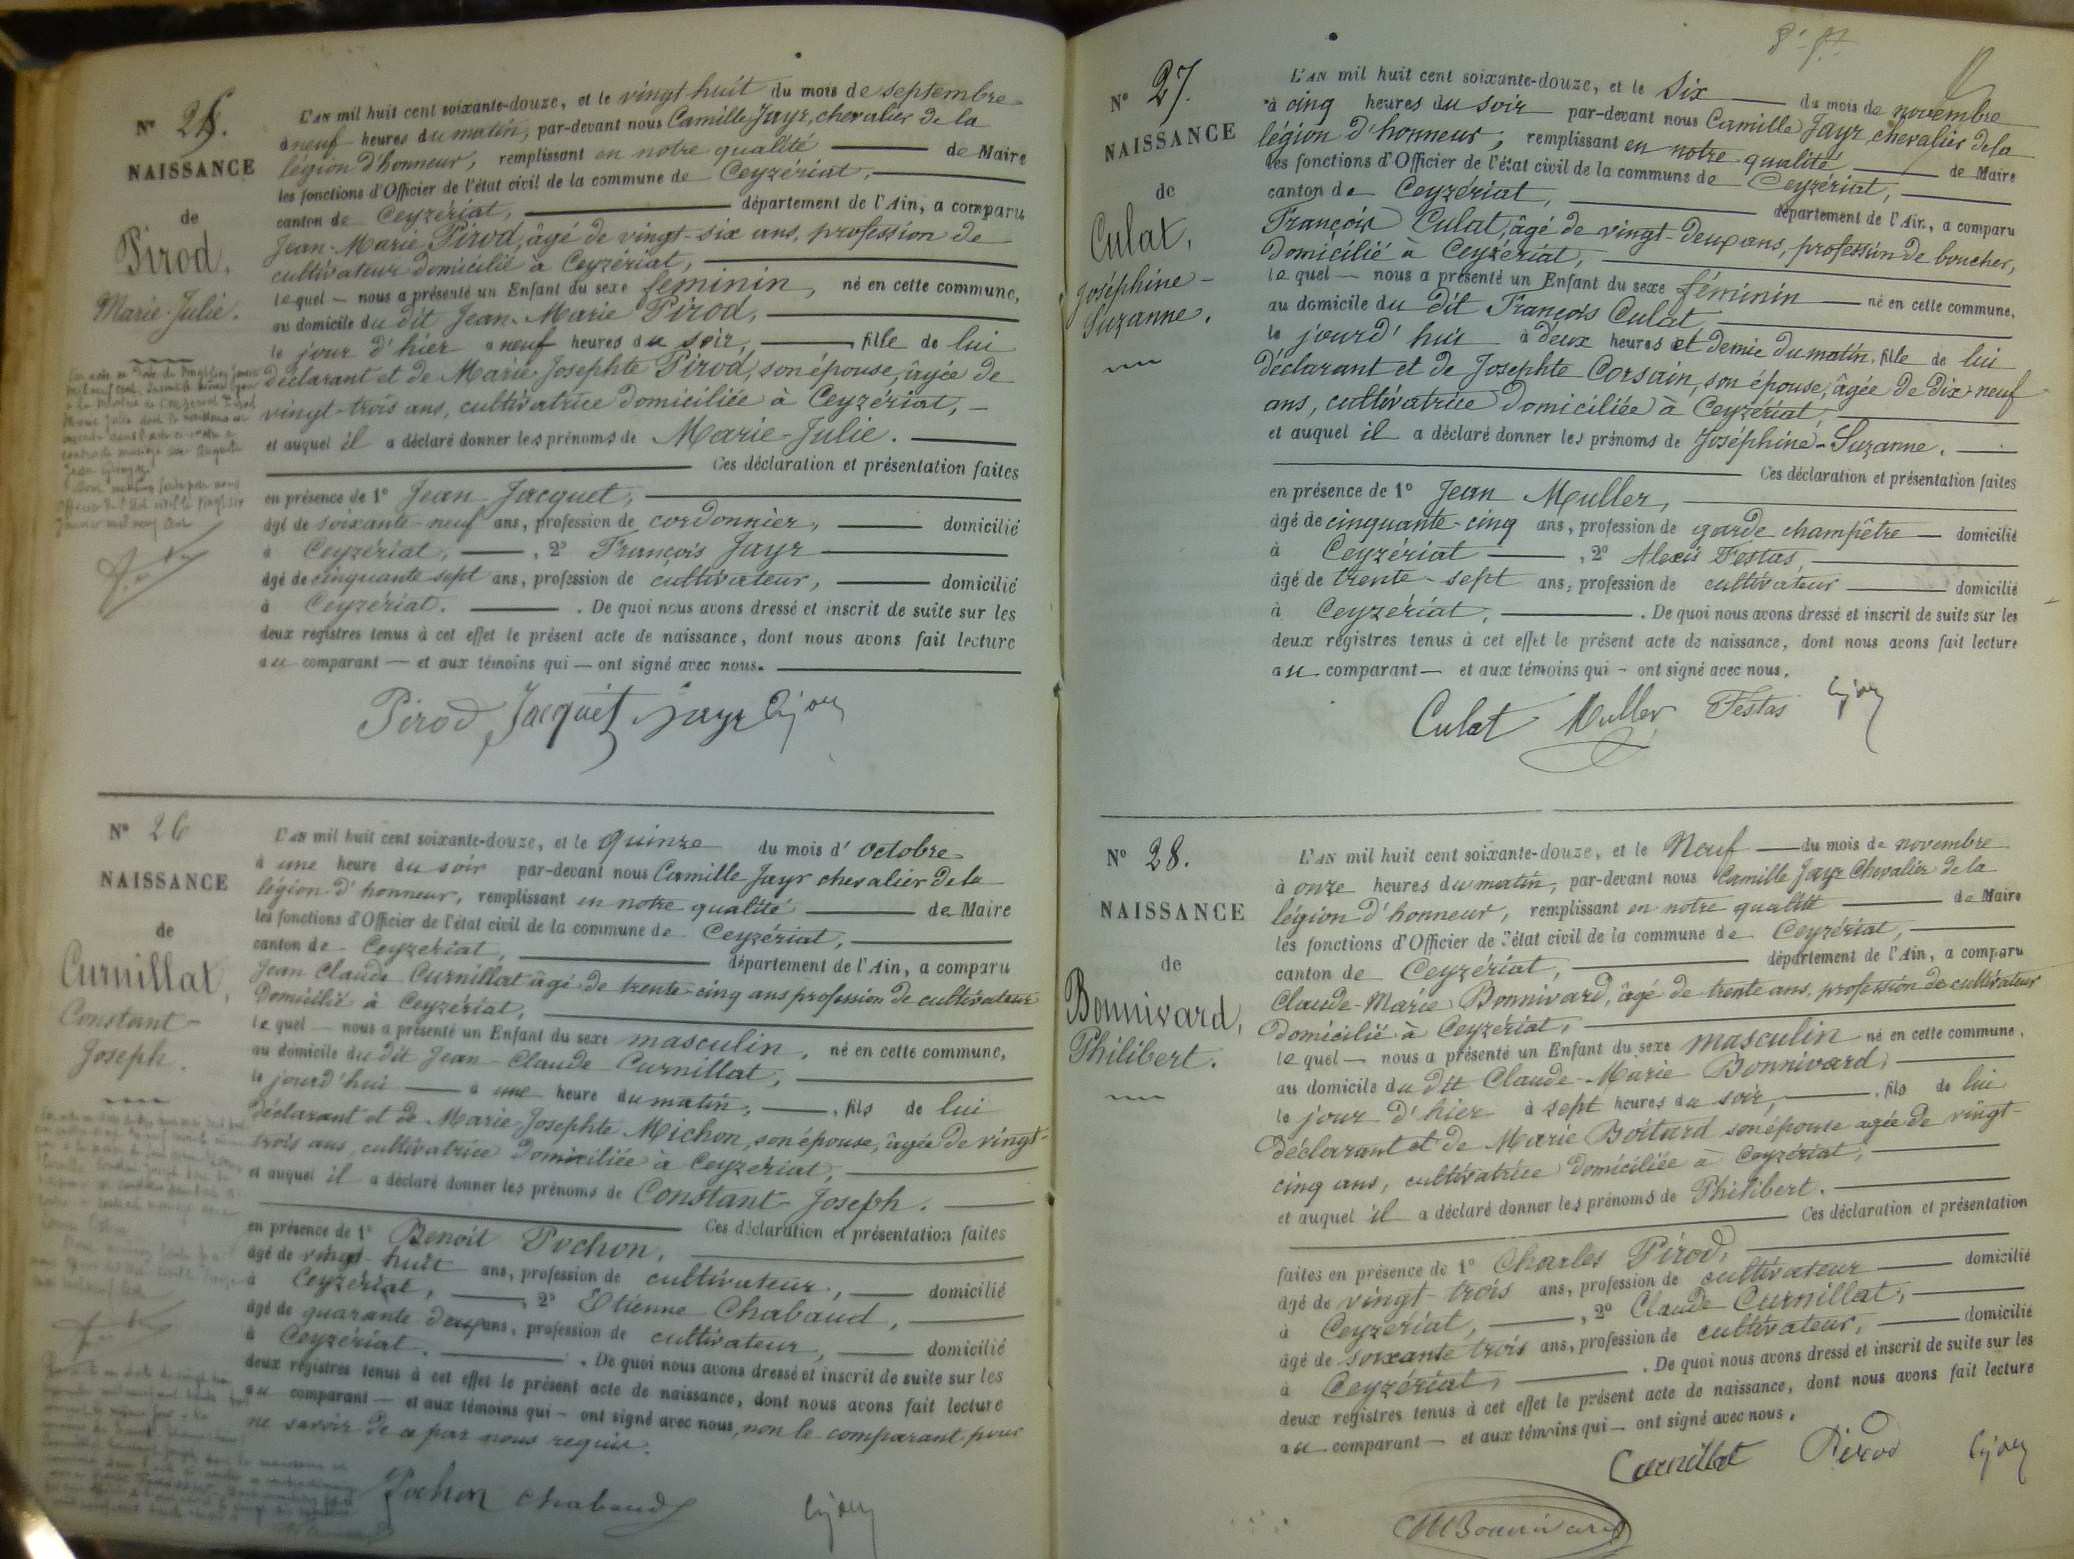 N° 25.
NAISSANCE
de
Pirod,
Marie-Julie.
L'AN mil huit cent soixante-douze, et le vingt huit du mois de septembre
à neuf heures du matin, par-devant nous Camille Jayr, chevalier de la
légion d'honneur, remplissant en notre qualité de Maire
les fonctions d'Officier de l'état civil de la commune de Ceyzériat,
canton de Ceyzériat, département de l'Ain, a comparu
Jean-Marie Pirod, âgé de vingt-six ans, profession de
cultivateur domicilié à Ceyzériat,
lequel — nous a présenté un Enfant du sexe féminin, né en cette commune,
au domicile du dit Jean-Marie Pirod,
le jour d'hier à neuf heures du soir, fille de lui
déclarant et de Marie-Josephte Pirod, son épouse, âgée de
vingt-trois ans, cultivatrice domiciliée à Ceyzériat, —
et auquel il a déclaré donner les prénoms de Marie-Julie.
Ces déclaration et présentation faites
en présence de 1° Jean Jacquet,
âgé de soixante-neuf ans, profession de cordonnier, domicilié
à Ceyzériat, , 2° François Jayr
âgé de cinquante sept ans, profession de cultivateur, domicilié
à Ceyzériat. . De quoi nous avons dressé et inscrit de suite sur les
deux registres tenus à cet effet le présent acte de naissance, dont nous avons fait lecture
au comparant — et aux témoins qui — ont signé avec nous.
Pirod Jacquet Jayr
N° 26
NAISSANCE
de
Curnillat,
Constant-
Joseph.
L'AN mil huit cent soixante-douze, et le quinze du mois d'octobre
à une heure du soir par-devant nous Camille Jayr chevalier de la
légion d'honneur, remplissant en notre qualité de Maire
les fonctions d'Officier de l'état civil de la commune de Ceyzériat,
canton de Ceyzériat, département de l'Ain, a comparu
Jean Claude Curnillat âgé de trente-cinq ans profession de cultivateur
domicilié à Ceyzériat,
lequel — nous a présenté un Enfant du sexe masculin, né en cette commune,
au domicile du dit Jean-Claude Curnillat,
le jourd'hui à une heure du matin, , fils de lui
déclarant et de Marie Josephte Michon, son épouse, âgée de vingt-
trois ans, cultivatrice domiciliée à Ceyzériat,
et auquel il a déclaré donner les prénoms de Constant-Joseph.
Ces déclaration et présentation faites
en présence de 1° Benoit Pochon,
âgé de vingt-huit ans, profession de cultivateur, domicilié
à Ceyzériat, , 2° Etienne Chabaud,
âgé de quarante deux ans, profession de cultivateur, domicilié
à Ceyzériat. . De quoi nous avons dressé et inscrit de suite sur les
deux registres tenus à cet effet le présent acte de naissance, dont nous avons fait lecture
au comparant — et aux témoins qui — ont signé avec nous, non le comparant pour
ne savoir de ce par nous requis.
Pochon Chabaud
N° 27.
NAISSANCE
de
Culat,
Joséphine-
Suzanne.
L'AN mil huit cent soixante-douze, et le Six du mois de novembre
à cinq heures du soir par-devant nous Camille Jayr chevalier de la
légion d'honneur, remplissant en notre qualité de Maire
les fonctions d'Officier de l'état civil de la commune de Ceyzériat,
canton de Ceyzériat, département de l'Ain, a comparu
François Culat, âgé de vingt-deux ans, profession de boucher,
domicilié à Ceyzériat,
lequel — nous a présenté un Enfant du sexe féminin né en cette commune,
au domicile du dit François Culat,
le jourd'hui à deux heures et demie du matin, fille de lui
déclarant et de Josephte Corsain, son épouse, âgée de dix-neuf
ans, cultivatrice domiciliée à Ceyzériat,
et auquel il a déclaré donner les prénoms de Joséphine-Suzanne.
Ces déclaration et présentation faites
en présence de 1° Jean Muller,
âgé de cinquante-cinq ans, profession de garde champêtre domicilié
à Ceyzériat , 2° Alexis Festas,
âgé de trente-sept ans, profession de cultivateur domicilié
à Ceyzériat, . De quoi nous avons dressé et inscrit de suite sur les
deux registres tenus à cet effet le présent acte de naissance, dont nous avons fait lecture
au comparant — et aux témoins qui — ont signé avec nous.
Culat Muller Festas
N° 28.
NAISSANCE
de
Bonnivard,
Philibert.
L'AN mil huit cent soixante-douze, et le Neuf du mois de novembre
à onze heures du matin, par-devant nous Camille Jayr Chevalier de la
légion d'honneur, remplissant en notre qualité de Maire
les fonctions d'Officier de l'état civil de la commune de Ceyzériat,
canton de Ceyzériat, département de l'Ain, a comparu
Claude-Marie Bonnivard, âgé de trente ans, profession de cultivateur
domicilié à Ceyzériat,
lequel — nous a présenté un Enfant du sexe masculin né en cette commune,
au domicile du dit Claude-Marie Bonnivard,
le jour d'hier à sept heures du soir, , fils de lui
déclarant et de Marie Boitard son épouse agée de vingt-
cinq ans, cultivatrice domiciliée à Ceyzériat,
et auquel il a déclaré donner les prénoms de Philibert.
Ces déclaration et présentation
faites en présence de 1° Charles Pirod,
âgé de vingt-trois ans, profession de cultivateur domicilié
à Ceyzériat, , 2° Claude Curnillat,
âgé de soixante trois ans, profession de cultivateur, domicilié
à Ceyzériat, . De quoi nous avons dressé et inscrit de suite sur les
deux registres tenus à cet effet le présent acte de naissance, dont nous avons fait lecture
au comparant — et aux témoins qui — ont signé avec nous.
Curnillat Pirod
Bonnivard